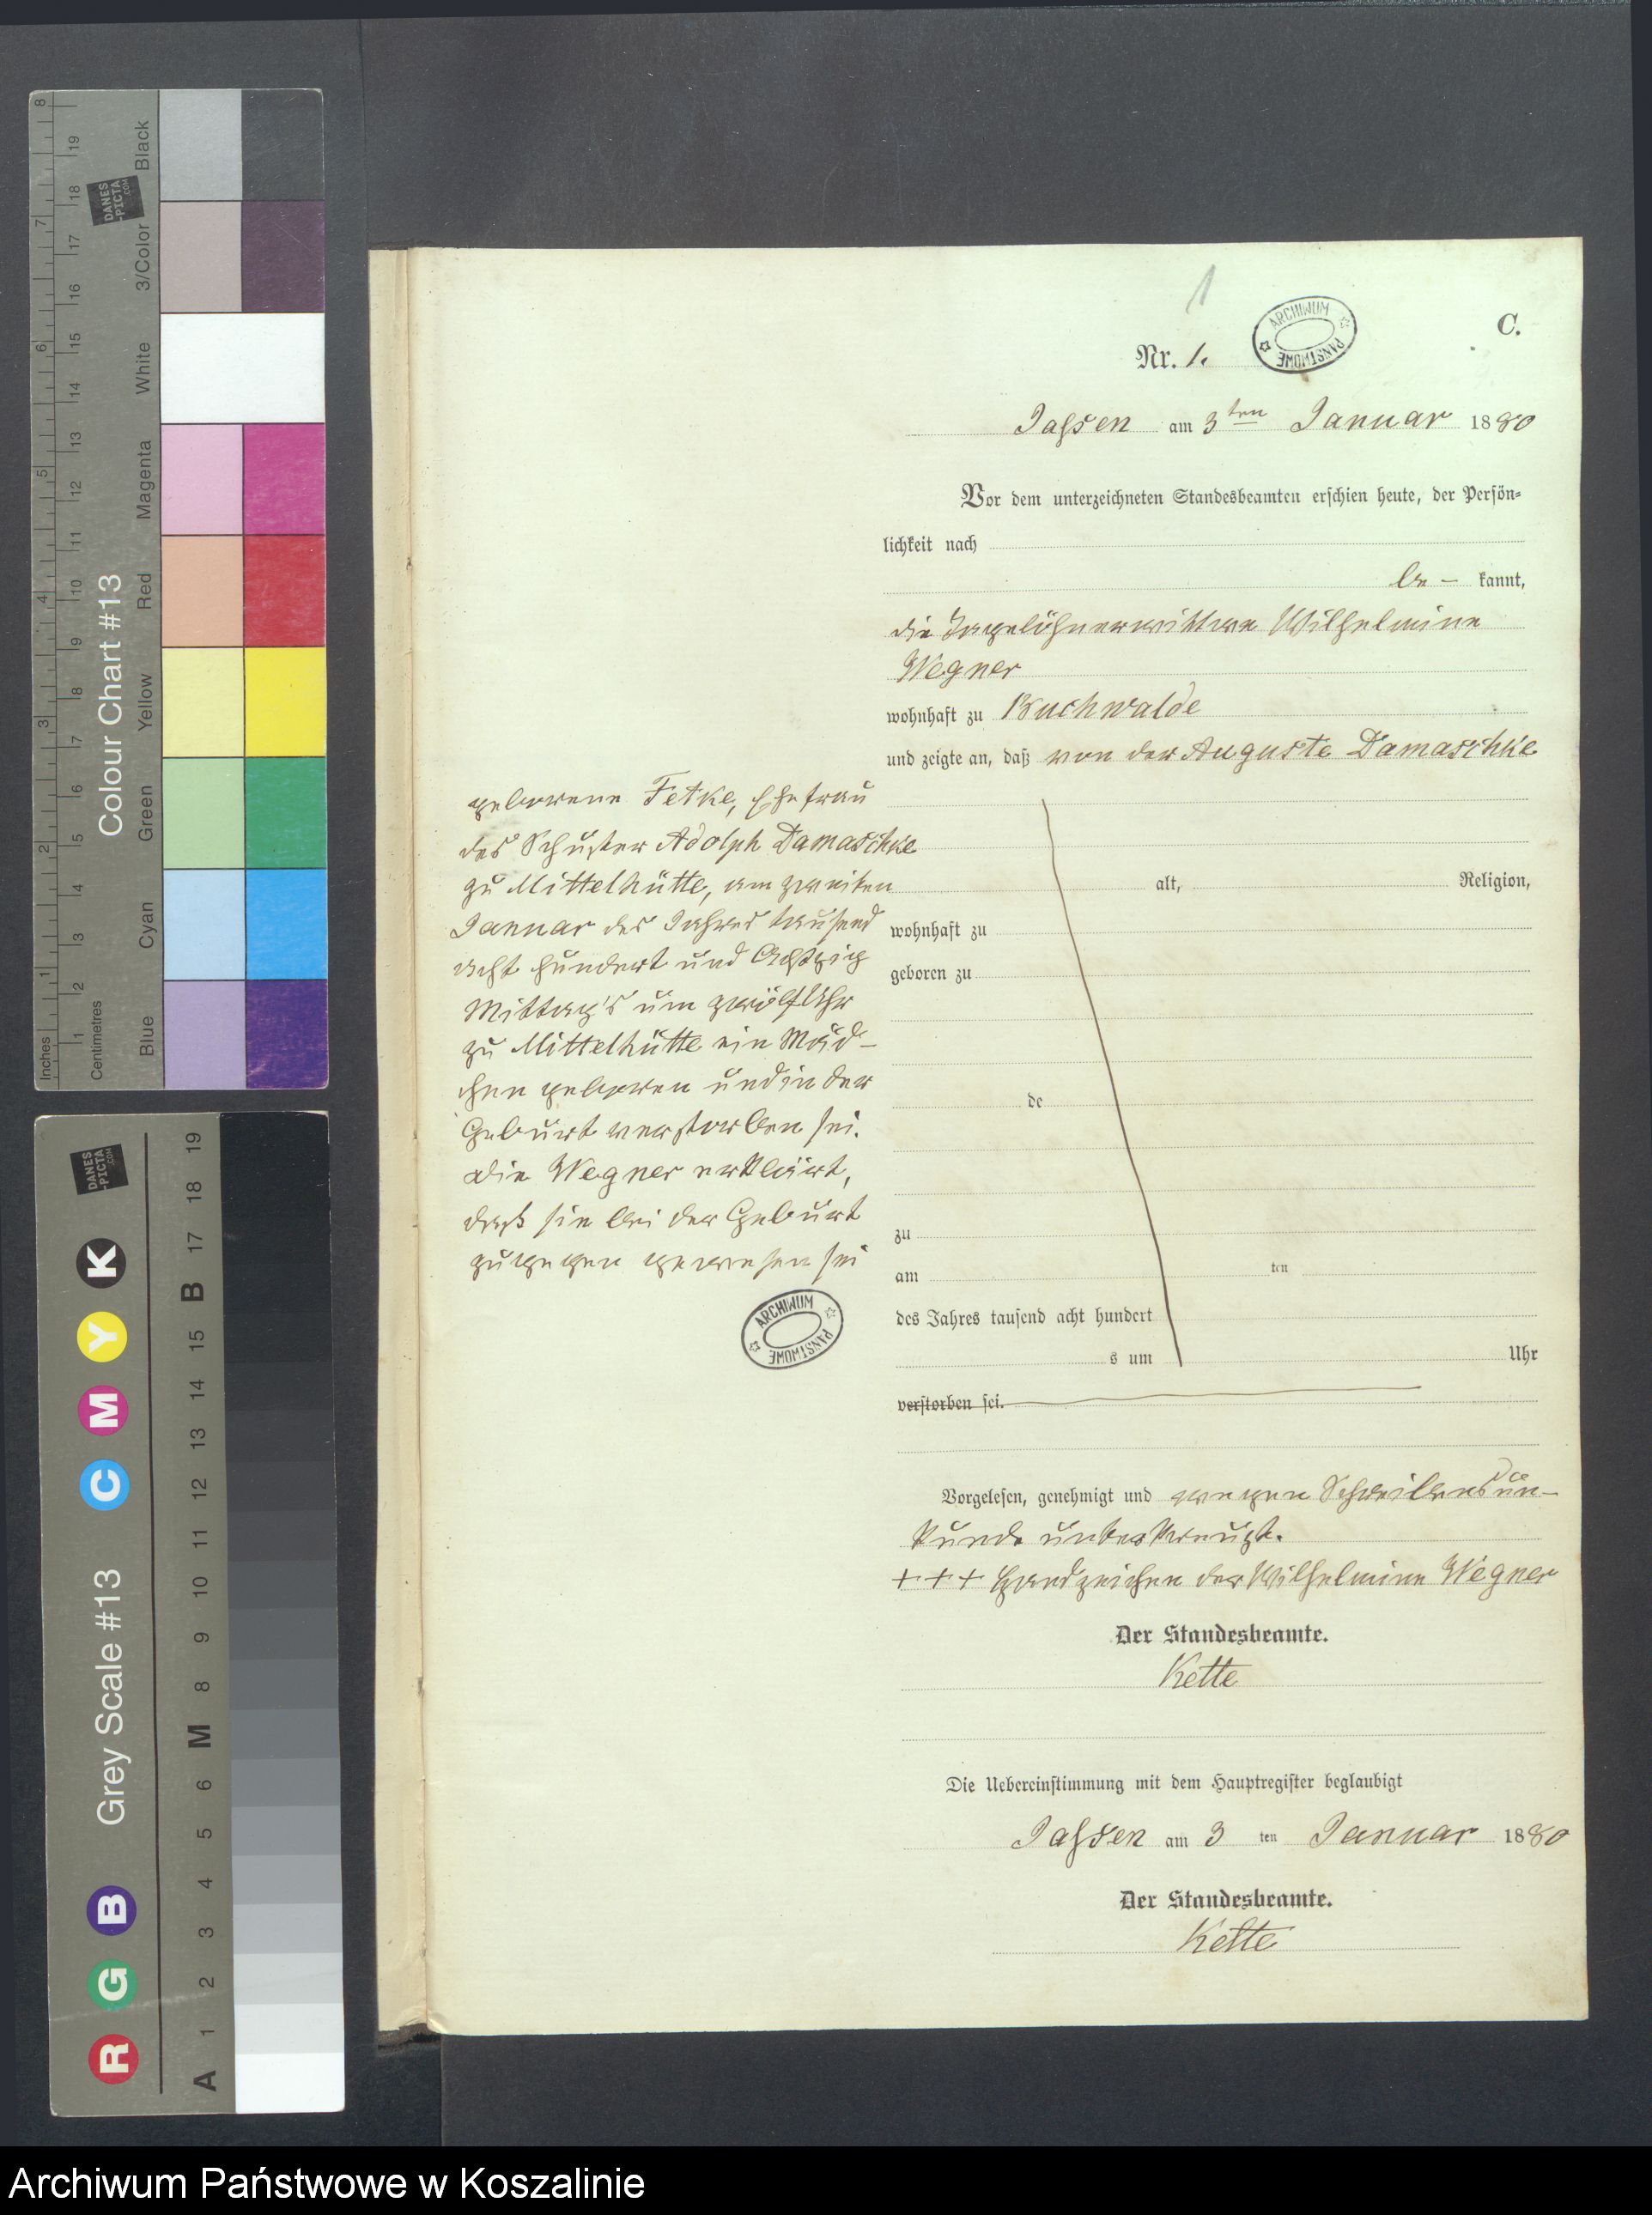 1
C.
Nr. 1.
ARCHIWUM PAŃSTWOWE
Jassen am 3ten Januar 1880
Vor dem unterzeichneten Standesbeamten erschien heute, der Persön-
lichkeit nach
be- kannt,
die Tagelöhnerwittwe Wilhelmine
Wegner
wohnhaft zu Buchwalde
und zeigte an, daß von der Auguste Damaschke
geborene Fetke, Ehefrau
des Schuster Adolph Damaschke
zu Mittelhütte, am zweiten
Januar des Jahres tausend
acht hundert und Achtzig
Mittag's um zwölf Uhr
zu Mittelhütte ein Mäd-
chen geboren und in der
Geburt verstorben sei.
Die Wegner erklärt,
daß sie bei der Geburt
zugegen gewesen sei
ARCHIWUM PAŃSTWOWE
alt, Religion,
wohnhaft zu
geboren zu
de
zu
am ten
des Jahres tausend acht hundert
s um Uhr
verstorben sei.
Vorgelesen, genehmigt und wegen Schreibensun-
kunde unterkreuzt.
+++ Handzeichen der Wilhelmine Wegner
Der Standesbeamte.
Kette
Die Uebereinstimmung mit dem Hauptregister beglaubigt
Jassen am 3 ten Januar 1880
Der Standesbeamte.
Kette
Colour Chart #13
Inches
1 2 3 4 5 6 7 8
Centimetres
1 2 3 4 5 6 7 8 9 10 11 12 13 14 15 16 17 18 19
Blue Cyan Green Yellow Red Magenta White 3/Color Black
DANES-PICTA.COM
Grey Scale #13
R G B C M Y K
A 1 2 3 4 5 6 M 8 9 10 11 12 13 14 15 B 17 18 19
DANES-PICTA.COM
Archiwum Państwowe w Koszalinie